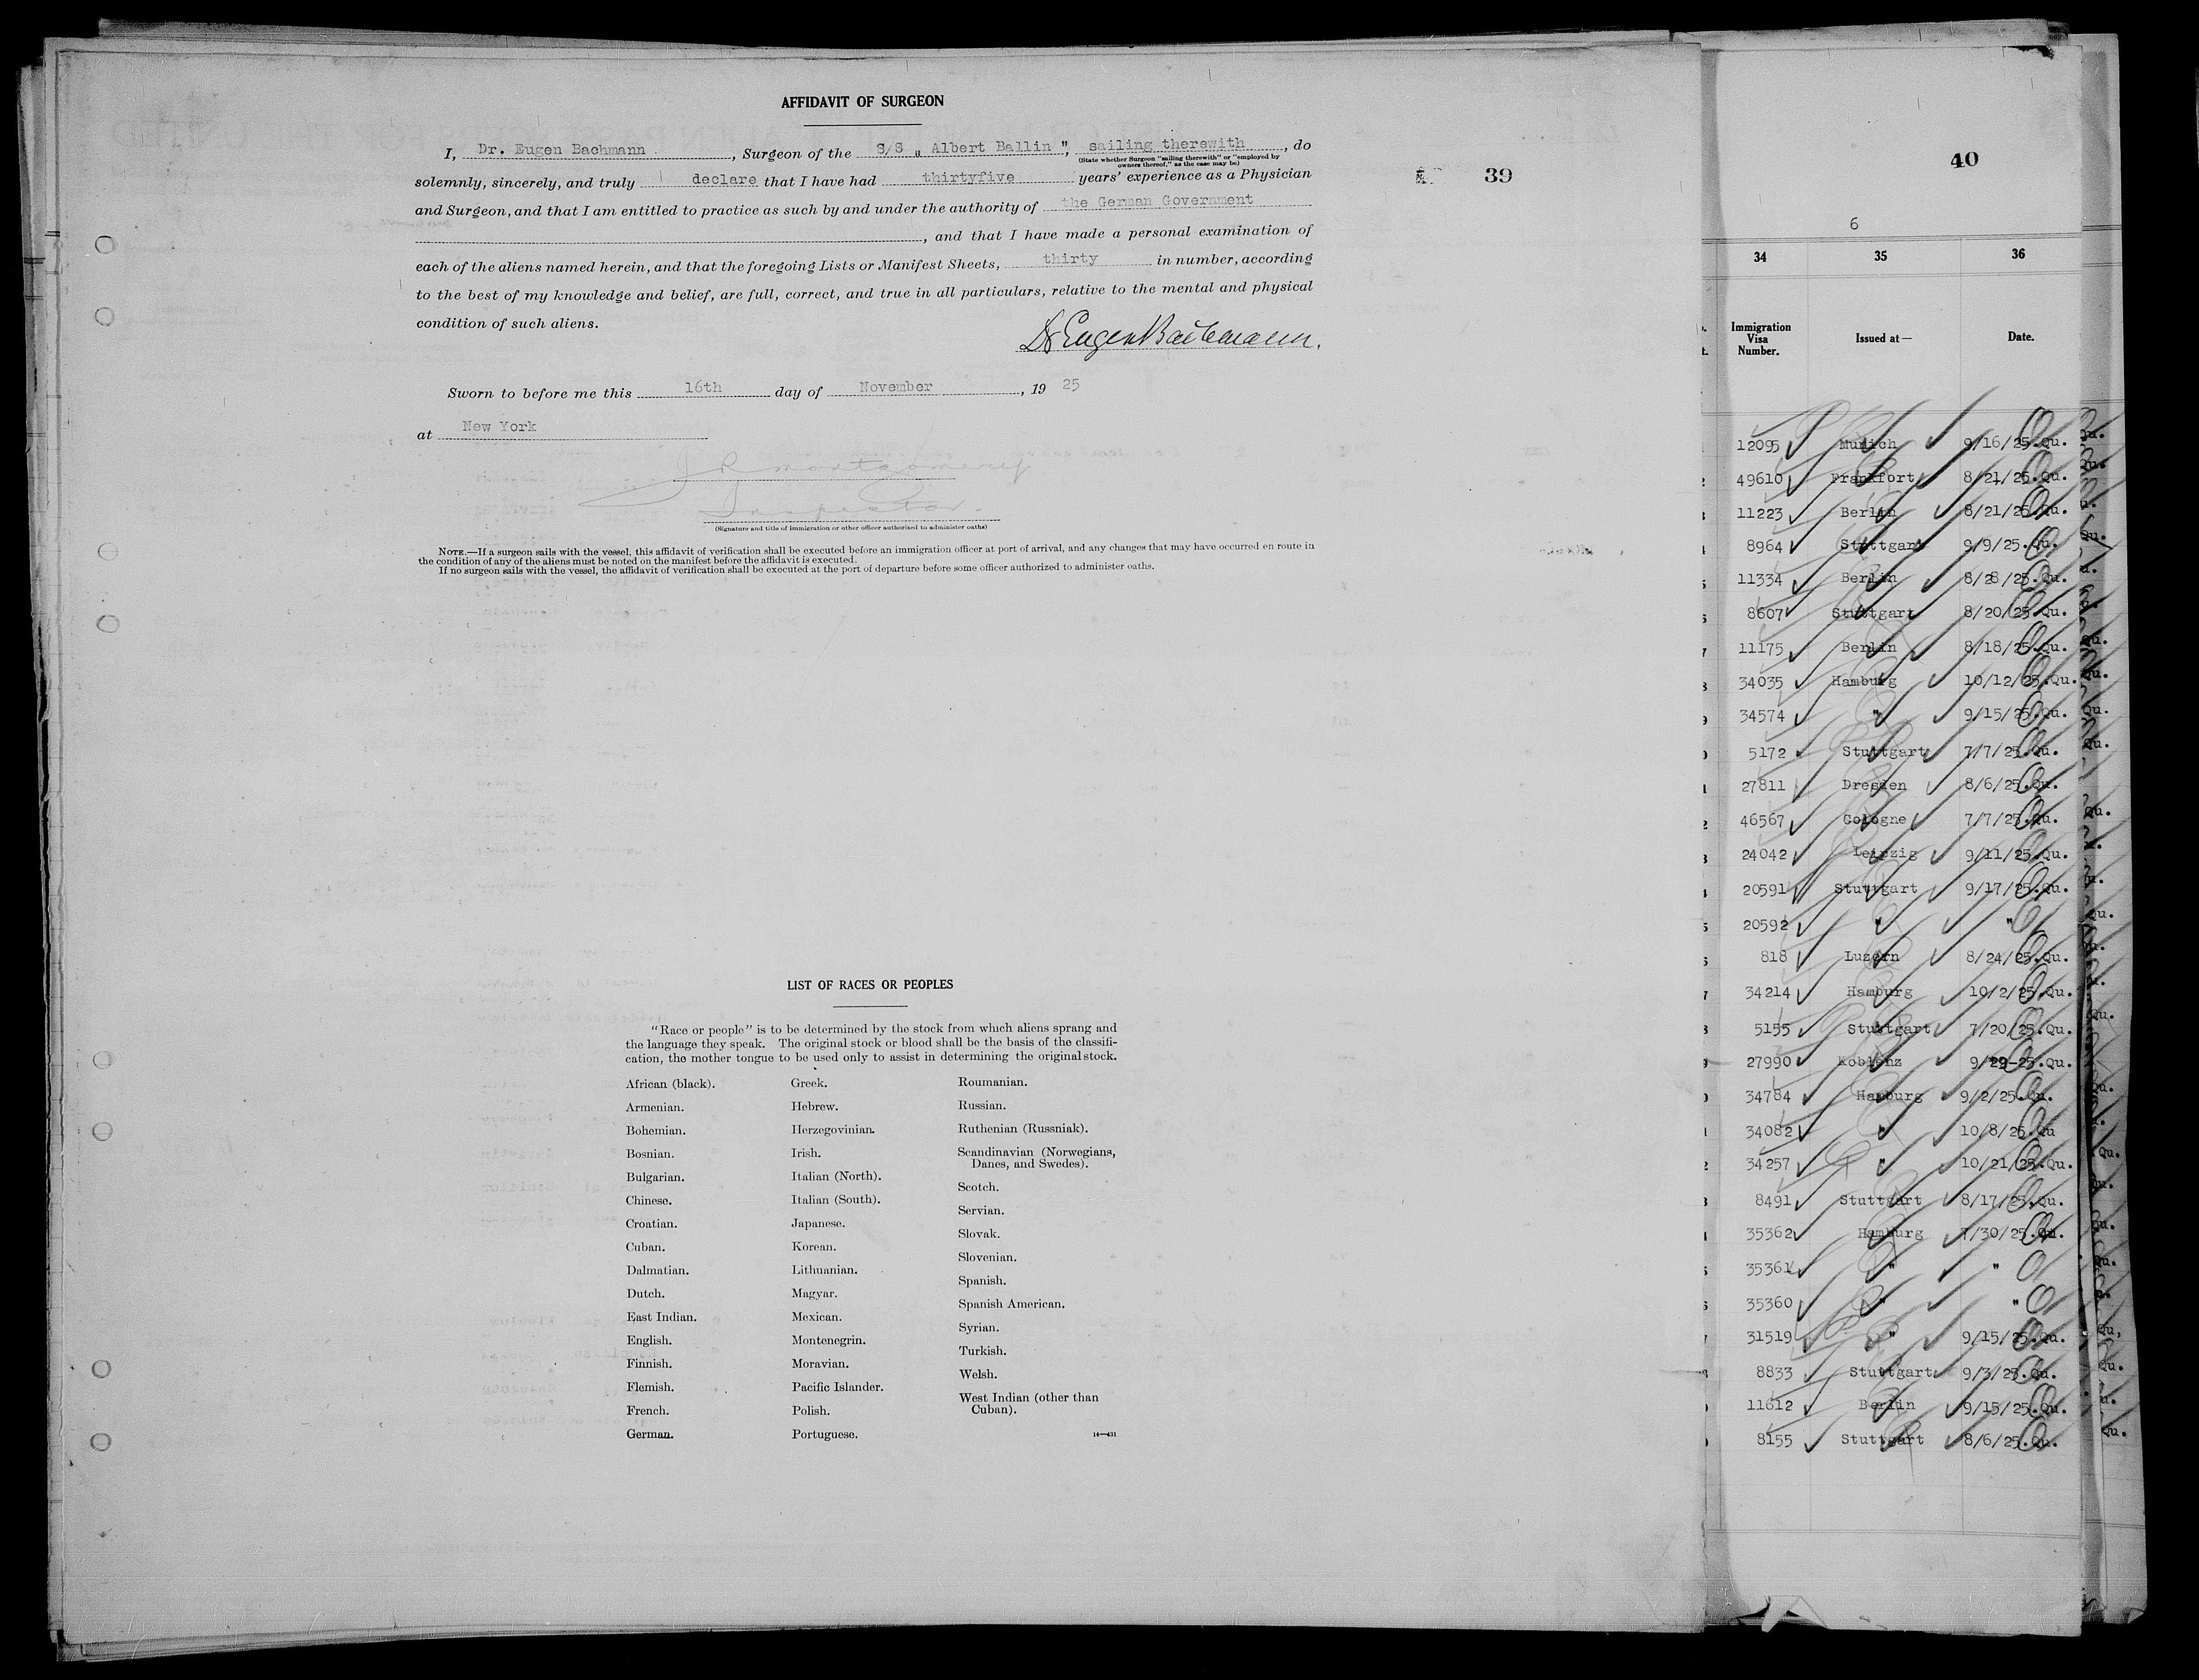 AFFIDAVIT OF SURGEON
I, Dr. Eugen Bachmann, Surgeon of the S/S „ Albert Ballin ", sailing therewith, do
(State whether Surgeon "sailing therewith" or "employed by
owners thereof," as the case may be)
solemnly, sincerely, and truly declare that I have had thirtyfive years' experience as a Physician
and Surgeon, and that I am entitled to practice as such by and under the authority of the German Government
, and that I have made a personal examination of
each of the aliens named herein, and that the foregoing Lists or Manifest Sheets, thirty in number, according
to the best of my knowledge and belief, are full, correct, and true in all particulars, relative to the mental and physical
condition of such aliens.
Dr Eugen Bachmann.
Sworn to before me this 16th day of November, 19 25
at New York
J R Montgomery
Inspector.
(Signature and title of immigration or other officer authorized to administer oaths)
NOTE.—If a surgeon sails with the vessel, this affidavit of verification shall be executed before an immigration officer at port of arrival, and any changes that may have occurred en route in
the condition of any of the aliens must be noted on the manifest before the affidavit is executed.
If no surgeon sails with the vessel, the affidavit of verification shall be executed at the port of departure before some officer authorized to administer oaths.
39
LIST OF RACES OR PEOPLES
"Race or people" is to be determined by the stock from which aliens sprang and
the language they speak. The original stock or blood shall be the basis of the classifi-
cation, the mother tongue to be used only to assist in determining the original stock.
African (black).
Armenian.
Bohemian.
Bosnian.
Bulgarian.
Chinese.
Croatian.
Cuban.
Dalmatian.
Dutch.
East Indian.
English.
Finnish.
Flemish.
French.
German.
Greek.
Hebrew.
Herzegovinian.
Irish.
Italian (North).
Italian (South).
Japanese.
Korean.
Lithuanian.
Magyar.
Mexican.
Montenegrin.
Moravian.
Pacific Islander.
Polish.
Portuguese.
Roumanian.
Russian.
Ruthenian (Russniak).
Scandinavian (Norwegians,
Danes, and Swedes).
Scotch.
Servian.
Slovak.
Slovenian.
Spanish.
Spanish American.
Syrian.
Turkish.
Welsh.
West Indian (other than
Cuban).
14—431
40
6
34 35 36
Immigration
Visa
Number.
Issued at—
Date.
12095 Munich 9/16/25.Qu.
49610 Frankfort 8/21/25.Qu.
11223 Berlin 8/21/25.Qu.
8964 Stuttgart 9/9/25.Qu.
11334 Berlin 8/28/25.Qu.
8607 Stuttgart 8/20/25.Qu.
11175 Berlin 8/18/25.Qu.
34035 Hamburg 10/12/25.Qu.
34574 " 9/15/25.Qu.
5172 Stuttgart 7/7/25.Qu.
27811 Dresden 8/6/25.Qu.
46567 Cologne 7/7/25.Qu.
24042 Leipzig 9/11/25.Qu.
20591 Stuttgart 9/17/25.Qu.
20592 " "
818 Luzern 8/24/25.Qu.
34214 Hamburg 10/2/25.Qu.
5155 Stuttgart 7/20/25.Qu.
27990 Koblenz 9/29-25.Qu.
34784 Hamburg 9/2/25.Qu.
34082 " 10/8/25.Qu
34257 " 10/21/25.Qu.
8491 Stuttgart 8/17/25.Qu.
35362 Hamburg 7/30/25.Qu.
35361 " "
35360 " "
31519 " 9/15/25.Qu.
8833 Stuttgart 9/3/25.Qu.
11612 Berlin 9/15/25.Qu.
8155 Stuttgart 8/6/25.Qu.